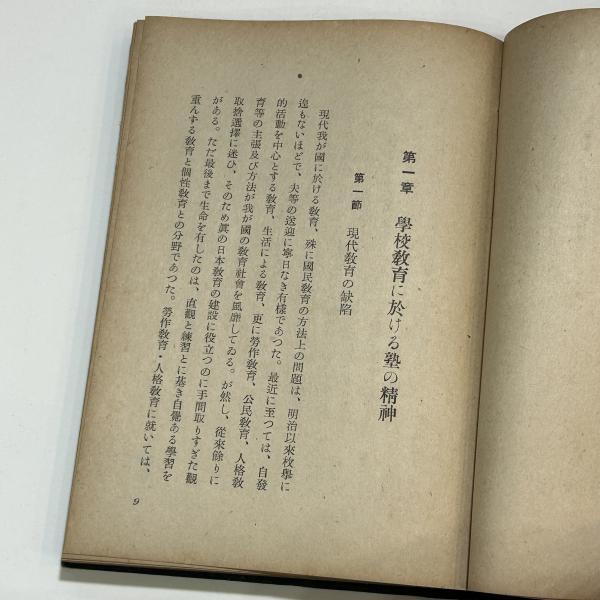 第一章　學校敎育に於ける塾の精神
第一節　現代敎育の缺陷
現代我が國に於ける敎育、殊に國民敎育の方法上の問題は、明治以來枚擧に
遑もないほどで、夫等の送迎に寧日なき有樣であつた。最近に至つては、自發
的活動を中心とする敎育、生活による敎育、更に勞作敎育、公民敎育、人格敎
育等の主張及び方法が我が國の敎育社會を風靡してゐる。が然し、從來餘りに
取捨選擇に迷ひ、そのため眞の日本敎育の建設に役立つのに手間取りすぎた觀
がある。ただ最後まで生命を有したのは、直觀と練習とに基き自覺ある學習を
重んずる敎育と個性敎育との分野であつた。勞作敎育・人格敎育に就いては、
9